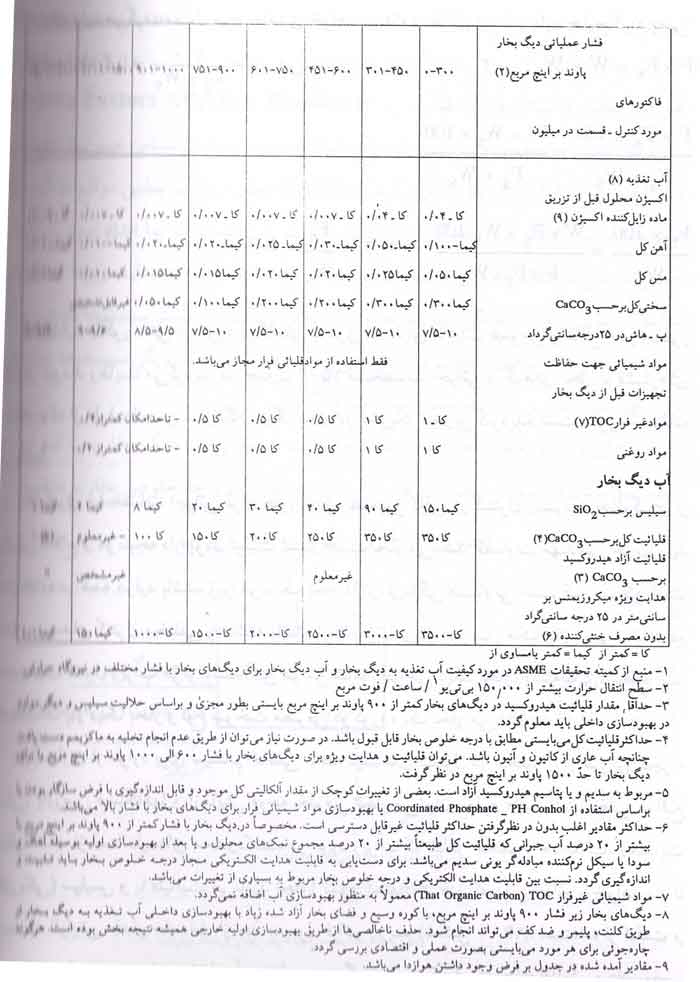 فشار عملیاتی دیگ بخار
پاوند بر اینچ مربع (۲) ۰-۳۰۰ ۳۰۱-۴۵۰ ۴۵۱-۶۰۰ ۶۰۱-۷۵۰ ۷۵۱-۹۰۰ ۹۰۱-۱۰۰۰
فاکتورهای
مورد کنترل ـ قسمت در میلیون
آب تغذیه (۸)
اکسیژن محلول قبل از تزریق
ماده زایل‌کننده اکسیژن (۹) کا ـ ۰/۰۴ کا ـ ۰/۰۴ کا ـ ۰/۰۰۷ کا ـ ۰/۰۰۷ کا ـ ۰/۰۰۷ کا ـ ۰/۰۰۷
آهن کل کیما-۰/۱۰۰ کیما-۰/۰۵۰ کیما-۰/۰۳۰ کیما-۰/۰۲۵ کیما-۰/۰۲۰ کیما-۰/۰۲۰
مس کل کیما ۰/۰۵۰ کیما ۰/۰۲۵ کیما ۰/۰۲۰ کیما ۰/۰۲۰ کیما ۰/۰۱۵ کیما ۰/۰۱۵
سختی کل برحسب CaCO3 کیما ۰/۳۰۰ کیما ۰/۳۰۰ کیما ۰/۲۰۰ کیما ۰/۲۰۰ کیما ۰/۱۰۰ کیما ۰/۰۵۰
پ ـ هاش در ۲۵ درجه سانتی‌گرداد ۷/۵-۱۰ ۷/۵-۱۰ ۷/۵-۱۰ ۷/۵-۱۰ ۷/۵-۱۰ ۸/۵-۹/۵ ۹-۹/۶
مواد شیمیائی جهت حفاظت فقط استفاده از مواد قلیائی فرار مجاز می‌باشد.
تجهیزات قبل از دیگ بخار
مواد غیر فرار TOC(۷) کا ـ ۱ کا ۱ کا ۰/۵ کا ۰/۵ کا ۰/۵ - تا حد امکان کمتر از
مواد روغنی کا ۱ کا ۱ کا ۰/۵ کا ۰/۵ کا ۰/۵ - تا حد امکان کمتر از
آب دیگ بخار
سیلیس برحسب SiO2 کیما ۱۵۰ کیما ۹۰ کیما ۴۰ کیما ۳۰ کیما ۲۰ کیما ۸
قلیائیت کل برحسب CaCO3(۴) کا ۳۵۰ کا ۳۵۰ کا ۲۵۰ کا ۲۰۰ کا ۱۵۰ کا ۱۰۰ - غیر معلوم
قلیائیت آزاد هیدروکسید
برحسب CaCO3 (۳) غیر معلوم غیر مشخص
هدایت ویژه میکروزیمنس بر
سانتی‌متر در ۲۵ درجه سانتی‌گراد
بدون مصرف خنثی‌کننده (۶) کا-۳۵۰۰ کا-۳۰۰۰ کا-۲۵۰۰ کا-۲۰۰۰ کا-۱۵۰۰ کا-۱۰۰۰ کیما ۱۵۰
کا = کمتر از کیما = کمتر یامساوی از
۱- منبع از کمیته تحقیقات ASME در مورد کیفیت آب تغذیه به دیگ بخار و آب دیگ بخار برای دیگ‌های بخار با فشار مختلف در نیروگاه
۲- سطح انتقال حرارت بیشتر از ۱۵۰٬۰۰۰ بی‌تی‌یو / ساعت / فوت مربع
۳- حداقل مقدار قلیائیت هیدروکسید در دیگ‌های بخار کمتر از ۹۰۰ پاوند بر اینچ مربع بایستی بطور مجزی و براساس حلالیت سیلیس و دیگر موارد
در بهسازی داخلی باید معلوم گردد.
۴- حداکثر قلیائیت کل می‌بایستی مطابق با درجه خلوص بخار قابل قبول باشد. در صورت نیاز می‌توان از طریق عدم انجام تخلیه به ماکزیمم دست یافت
چنانچه آب عاری از کاتیون و آنیون باشد. می‌توان قلیائیت و هدایت ویژه برای دیگ‌های بخار با فشار ۶۰۰ الی ۱۰۰۰ پاوند بر اینچ مربع را برای
دیگ بخار تا حدّ ۱۵۰۰ پاوند بر اینچ مربع در نظر گرفت.
۵- مربوط به سدیم و یا پتاسیم هیدروکسید آزاد است. بعضی از تغییرات کوچک از مقدار آلکالیتی کل موجود و قابل اندازه‌گیری با فرض سازگار بودن یا
براساس استفاده از Coordinated Phosphate _ PH Conhol و یا بهسودازی مواد شیمیائی فرار برای دیگ‌های بخار با فشار بالا می‌باشد.
۶- حداکثر مقادیر اغلب بدون در نظر گرفتن حداکثر قلیائیت غیرقابل دسترسی است. مخصوصاً در دیگ بخار با فشار کمتر از ۹۰۰ پاوند بر اینچ مربع با
بیشتر از ۲۰ درصد آب جبرانی که قلیائیت کل طبیعتاً بیشتر از ۲۰ درصد مجموع نمک‌های محلول و یا بعد از بهسودازی اولیه بوسیله آهک و
سودا یا سیکل نرم‌کننده مبادله‌گر یونی سدیم می‌باشد. برای دست‌یابی به قابلیت هدایت الکتریکی مجاز درجه خلوص بخار باید قلیائیت و
اندازه‌گیری گردد. نسبت بین قابلیت هدایت الکتریکی و درجه خلوص بخار مربوط به بسیاری از تغییرات می‌باشد.
۷- مواد شیمیائی غیرفرار TOC (That Organic Carbon) معمولاً به منظور بهسودازی آب اضافه نمی‌گردد.
۸- دیگ‌های بخار زیر فشار ۹۰۰ پاوند بر اینچ مربع، با کوره وسیع و فضای بخار آزاد شده زیاد با بهسودازی داخلی آب تغذیه به دیگ بخار از
طریق کلنت، پلیمر و ضد کف می‌تواند انجام شود. حذف ناخالصی‌ها از طریق بهسودازی اولیه خارجی همیشه نتیجه بخش بوده است. هرگونه
چاره‌جوئی برای هر مورد می‌بایستی بصورت عملی و اقتصادی بررسی گردد.
۹- مقادیر آمده شده در جدول بر فرض وجود داشتن هوازدا می‌باشد.